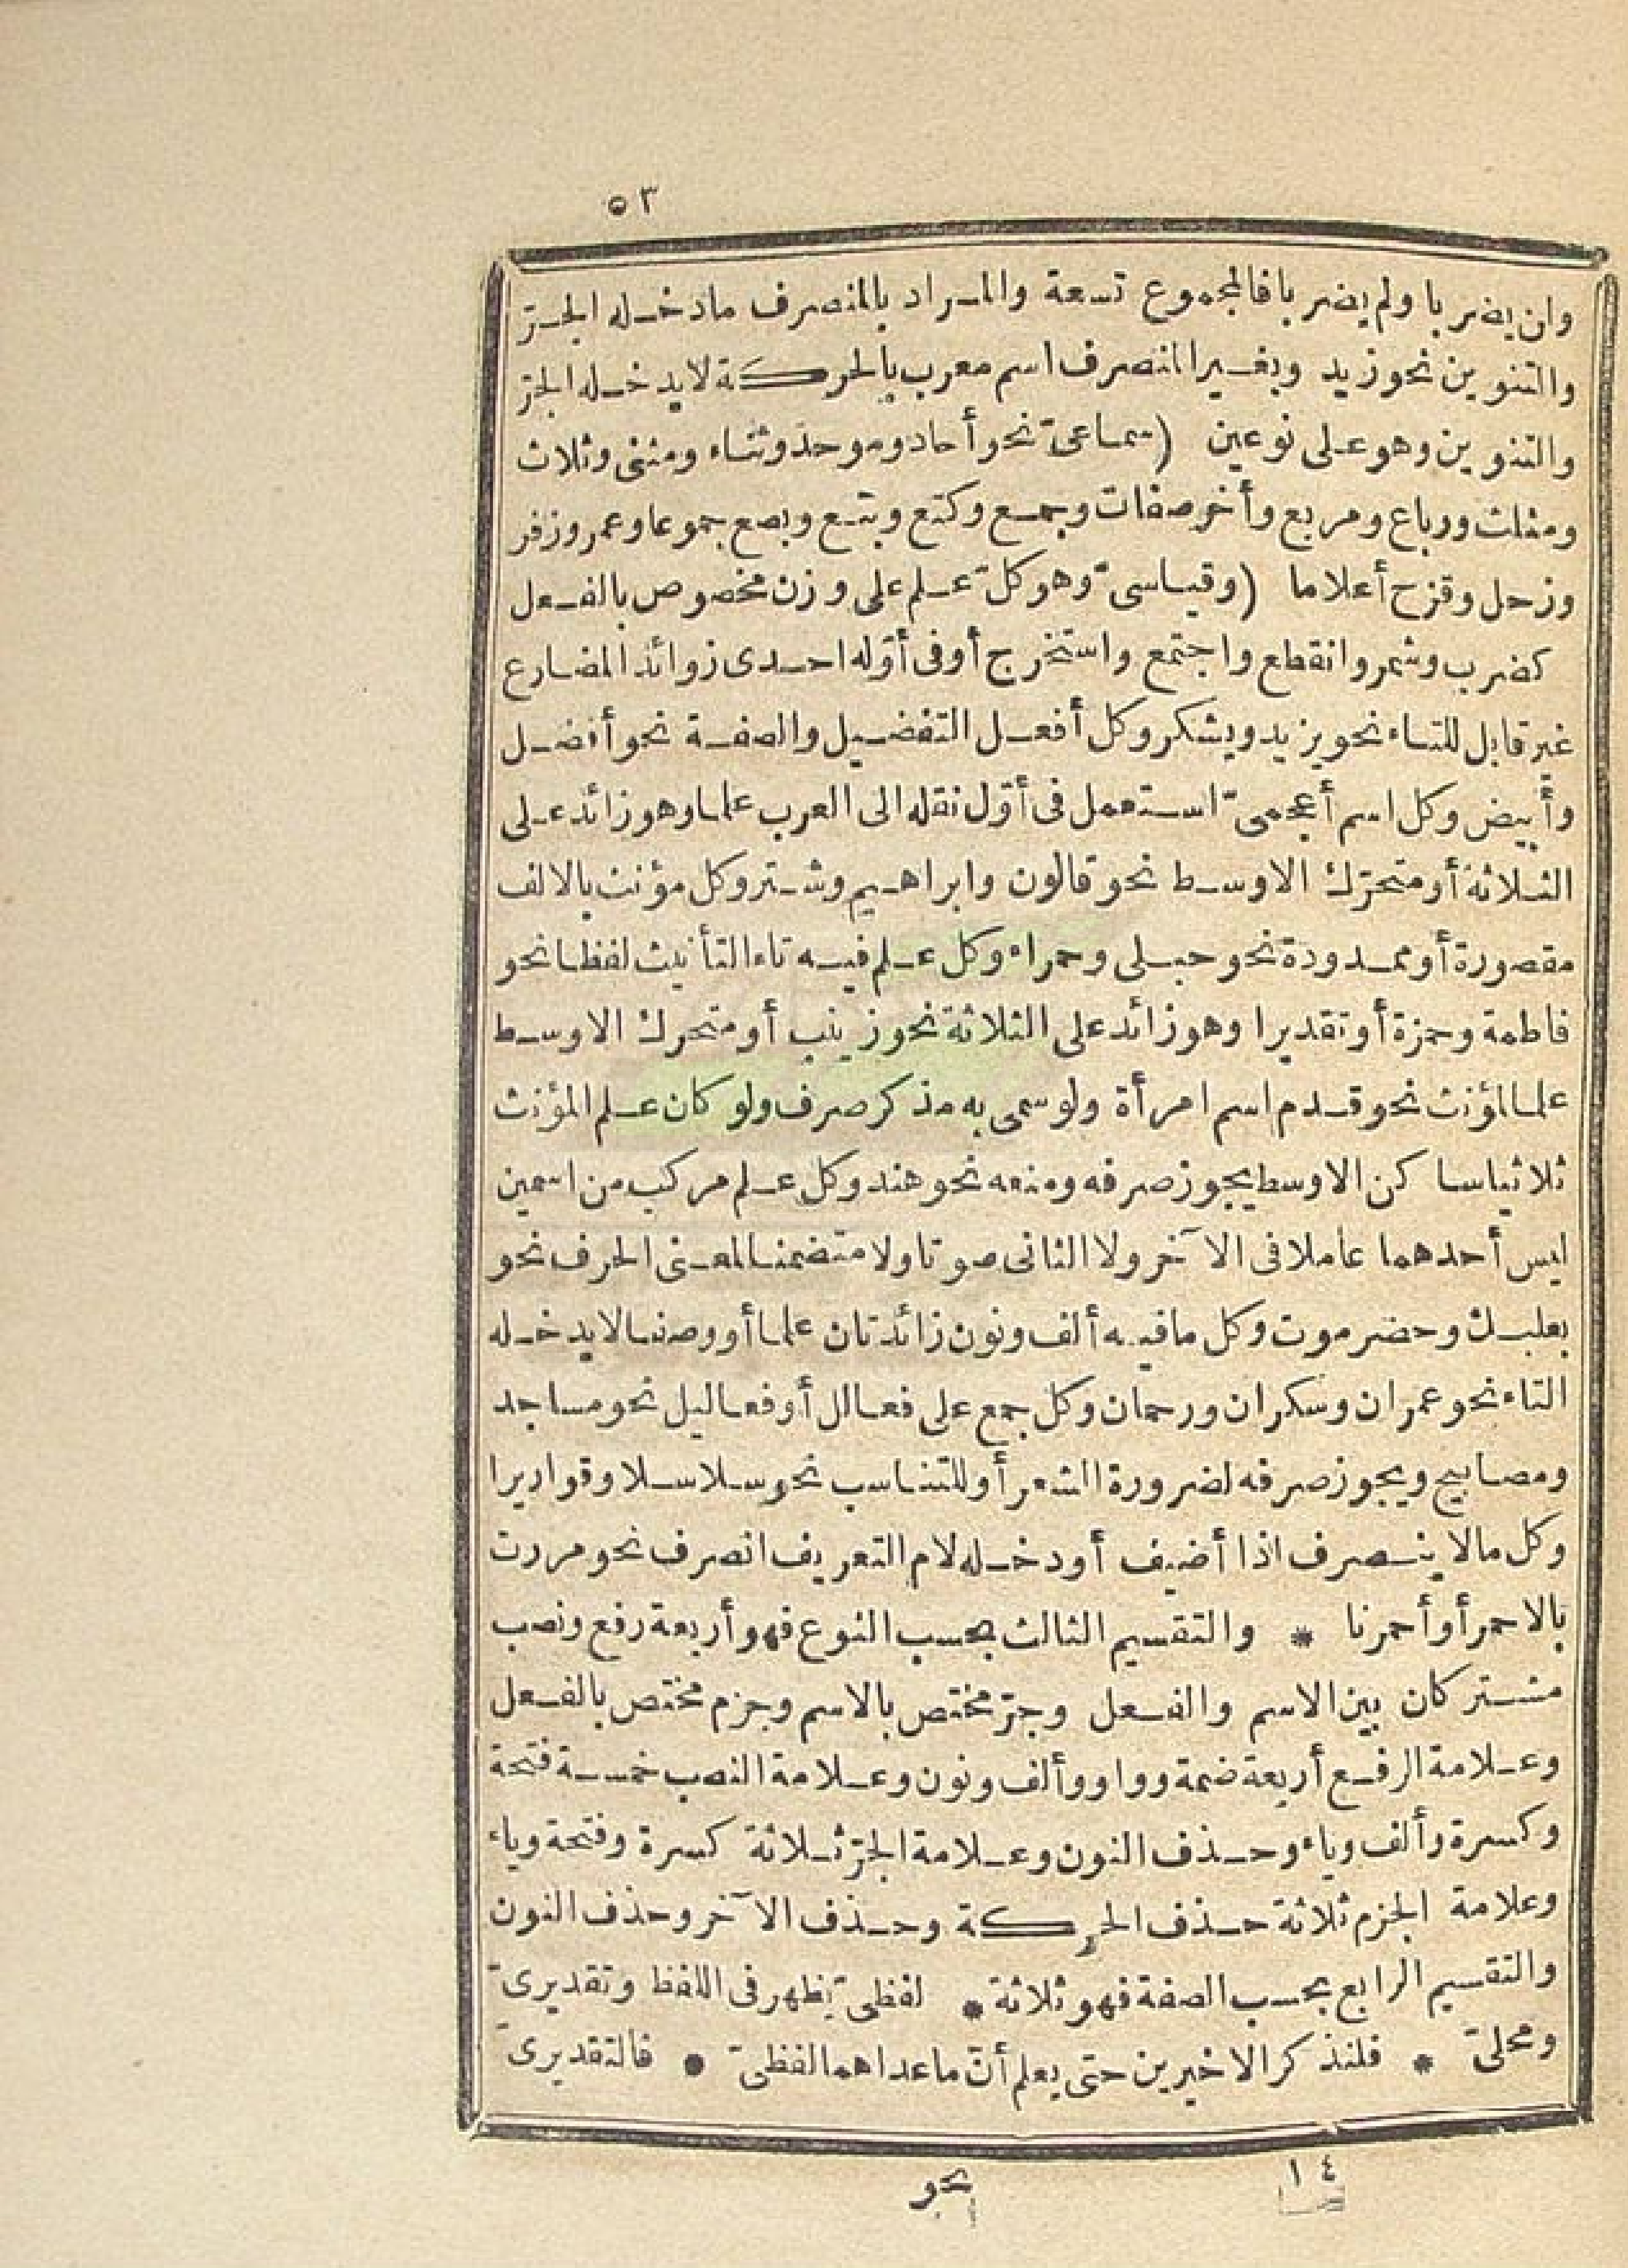 ٥٣
وان يضربا ولم يضربا فالمجموع تسعة والمراد بالمنصرف مادخله الجرّ
والتنوين نحو زيد وبغير المنصرف اسم معرب بالحركة لايدخله الجرّ
والتنوين وهو على نوعين (سماعىّ نحو أحاد وموحد وثناء ومثنى وثلاث
ومثلث ورباع ومربع وأخر صفات وجمع وكتع وبتع وبصع جموعا وعمر وزفر
وزحل وقزح أعلاما (وقياسىّ وهو كلّ علم على وزن مخصوص بالفعل
كضرب وشمر وانقطع واجتمع واستخرج أوفى أوّله احدى زوائد المضارع
غير قابل للتاء نحو يزيد ويشكر وكل أفعل التفضيل والصفة نحو أفضل
وأبيض وكل اسم أعجمىّ استعمل فى أوّل نقله الى العرب علما وهو زائد على
الثلاثة أو متحرّك الاوسط نحو قالون وابراهيم وشتر وكل مؤنث بالالف
مقصورة أو ممدودة نحو حبلى وحمراء وكل علم فيه تاء التأنيث لفظا نحو
فاطمة وحمزة أو تقديرا وهو زائد على الثلاثة نحو زينب أو متحرك الاوسط
علما لمؤنث نحو قدم اسم امرأة ولو سمى به مذكر صرف ولو كان علم المؤنث
ثلاثيا ساكن الاوسط يجوز صرفه ومنعه نحو هند وكل علم مركب من اسمين
ليس أحدهما عاملا فى الآخر ولا الثانى صوتا ولا متضمنا لمعنى الحرف نحو
بعلبك وحضرموت وكل مافيه ألف ونون زائدتان علما أو وصفا لايدخله
التاء نحو عمران وسكران ورحمان وكل جمع على فعالل أو فعاليل نحو مساجد
ومصابيح ويجوز صرفه لضرورة الشعر أو للتناسب نحو سلاسلا وقواريرا
وكل مالا ينصرف اذا أضيف أو دخله لام التعريف انصرف نحو مررت
بالاحمر أو أحمرنا * والتقسيم الثالث بحسب النوع فهو أربعة رفع ونصب
مشتركان بين الاسم والفعل وجرّ مختص بالاسم وجزم مختص بالفعل
وعلامة الرفع أربعة ضمة وواو وألف ونون وعلامة النصب خمسة فتحة
وكسرة وألف وياء وحذف النون وعلامة الجرّ ثلاثة كسرة وفتحة وياء
وعلامة الجزم ثلاثة حذف الحركة وحذف الآخر وحذف النون
والتقسيم الرابع بحسب الصفة فهو ثلاثة * لفظىّ يظهر فى اللفظ وتقديرىّ
ومحلىّ * فلنذكر الاخيرين حتى يعلم أنّ ماعداهما لفظىّ * فالتقديرىّ
١٤ نحو